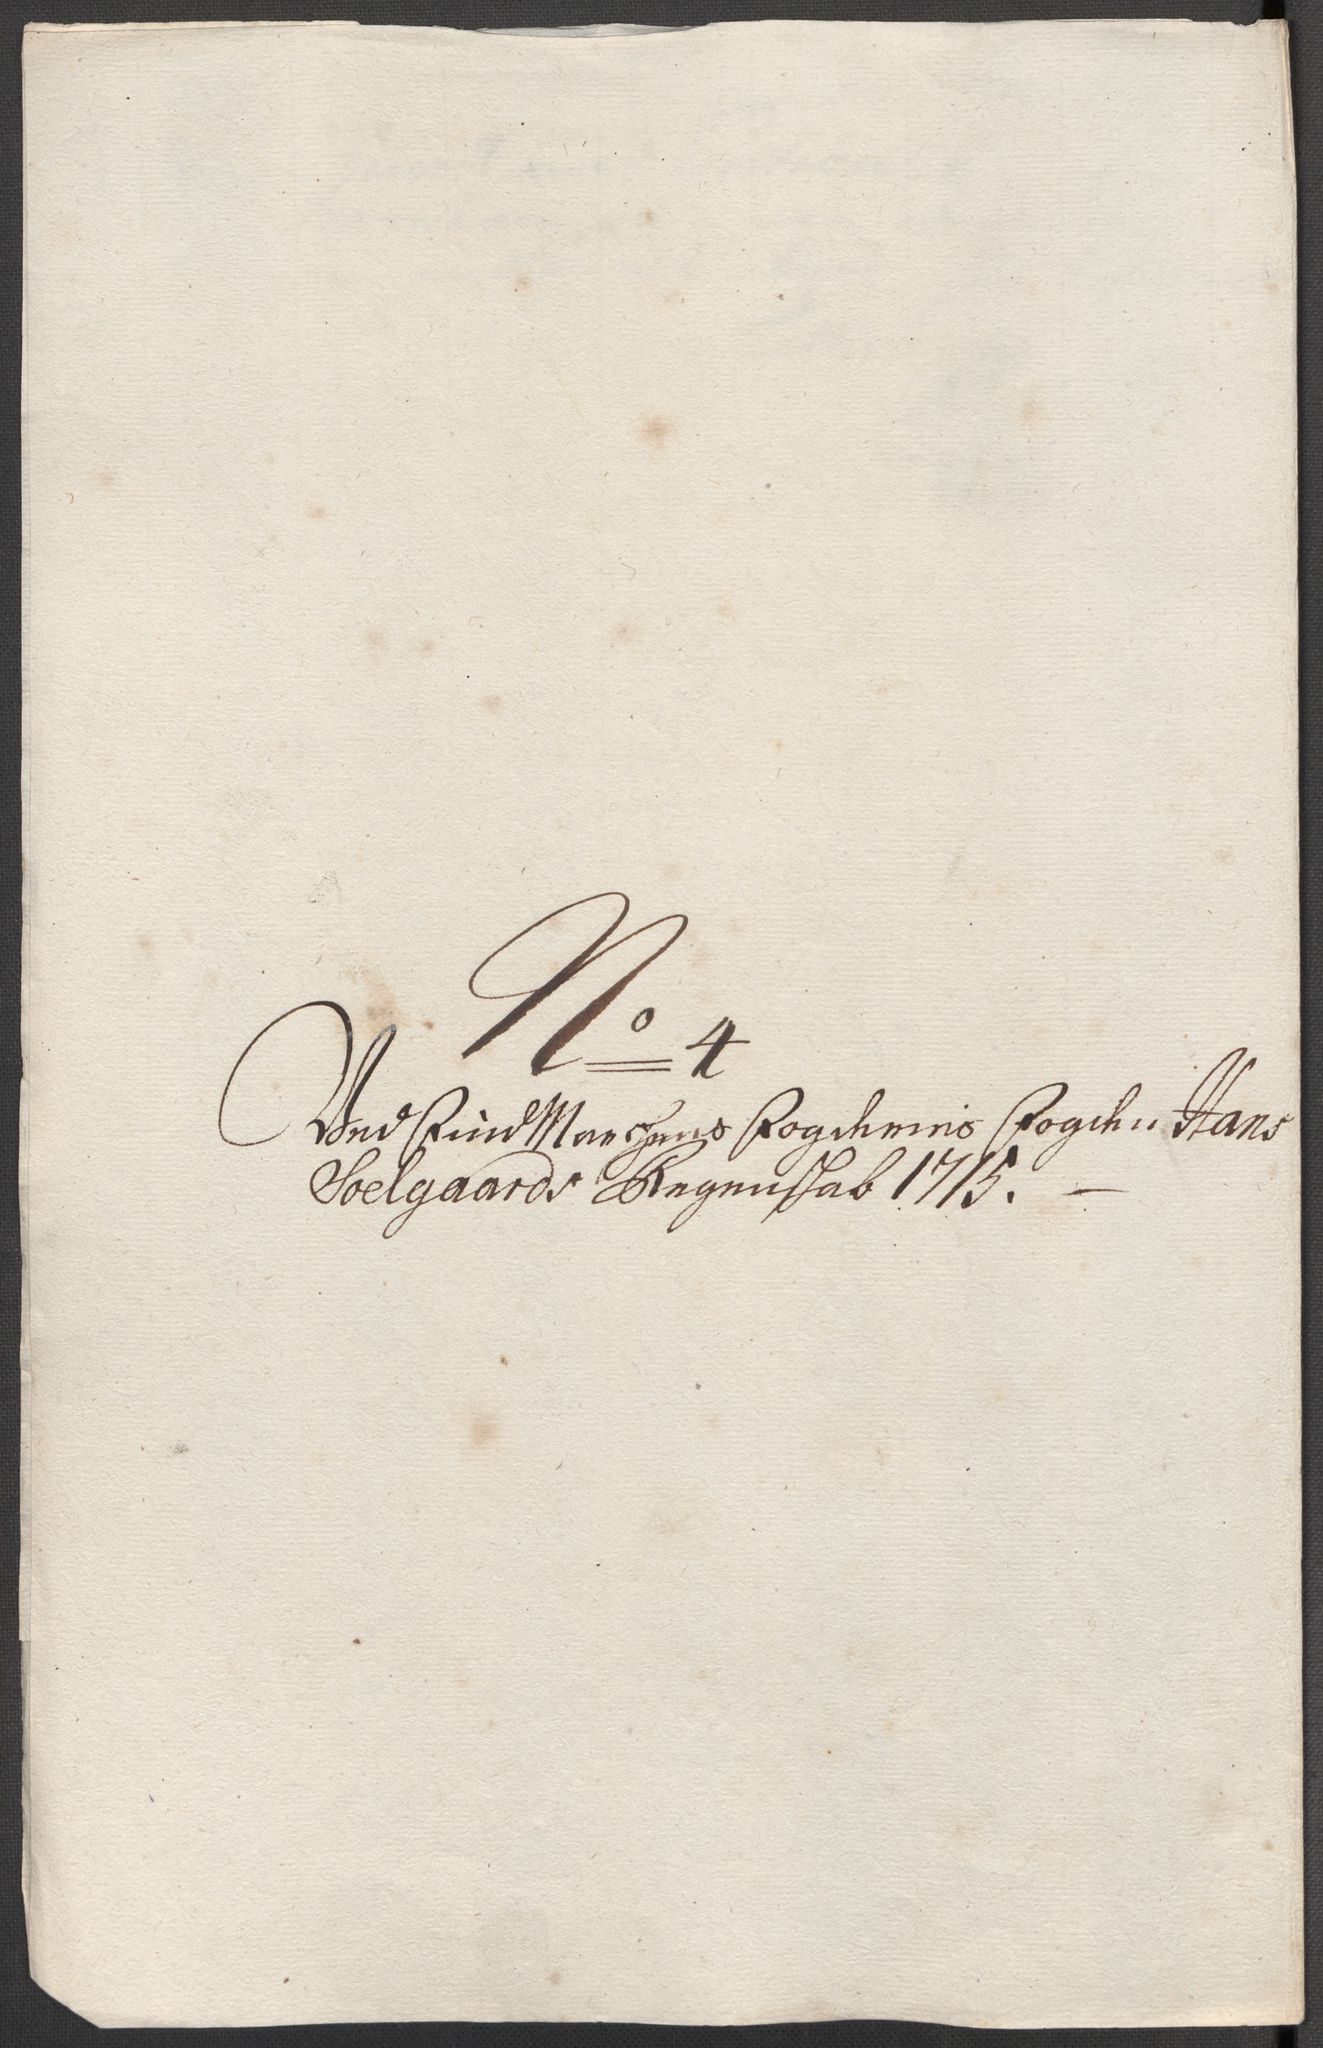 No 4
Ved Find Marchens Fogderies Fogden Hans
Soelgaards Regenskab 1715. —